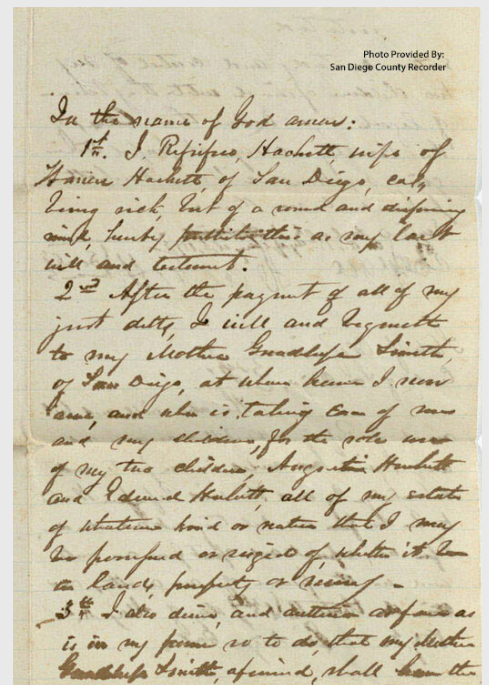 Photo Provided By:
San Diego County Recorder
In the name of God amen:
1st. I Refugio, Hackett, wife of
Hackett, of San Diego, Cal,
being sick, but of a sound and disposing
mind, hereby this as my last
will and testament.
2nd After the payment of all of my
just debts, I will and bequeath
to my Mother Guadalupe Smith,
of San Diego, at whose house I now
am, and who is taking care of me
and my children, for the sole use
of my two children, Augustin Hackett
and Edward Hackett, all of my estate
of whatever kind or nature that I may
be possessed or seized of, whether it be
in land, property or money -
3rd I also desire, and authorize as far as
is in my power so to do, that my Mother
Guadalupe Smith, aforesaid, shall have the